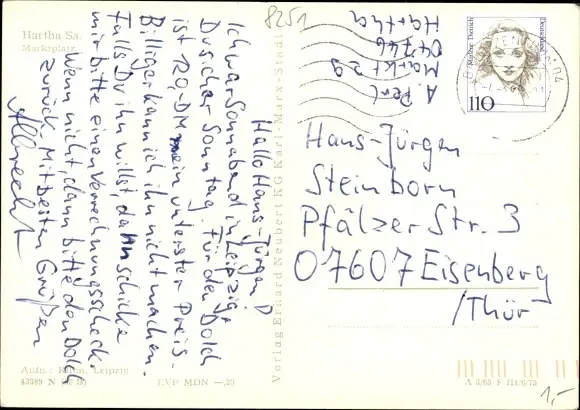 Hartha Sa.
Marktplatz
8251
Hallo Hans-Jürgen!
Ich war Sonnabend in Leipzig,
Du sicher Sonntag. Für den Dolch
ist 120,-DM mein unterster Preis.
Billiger kann ich ihn nicht machen.
Falls Du ihn willst, dann schicke
mir bitte einen Verrechnungsscheck.
Wenn nicht, dann bitte den Dolch
zurück. Mit besten Grüßen
Albrecht
Aufn.: Leipzig
43389 N
EVP MDN —,20
Verlag Erhard Neubert KG Karl-Marx-Stadt
Markt 29
04746
Hartha
Marlene Dietrich
Deutschland
110
Hans-Jürgen
Steinborn
Pfälzer Str. 3
07607 Eisenberg
/Thür
1,-